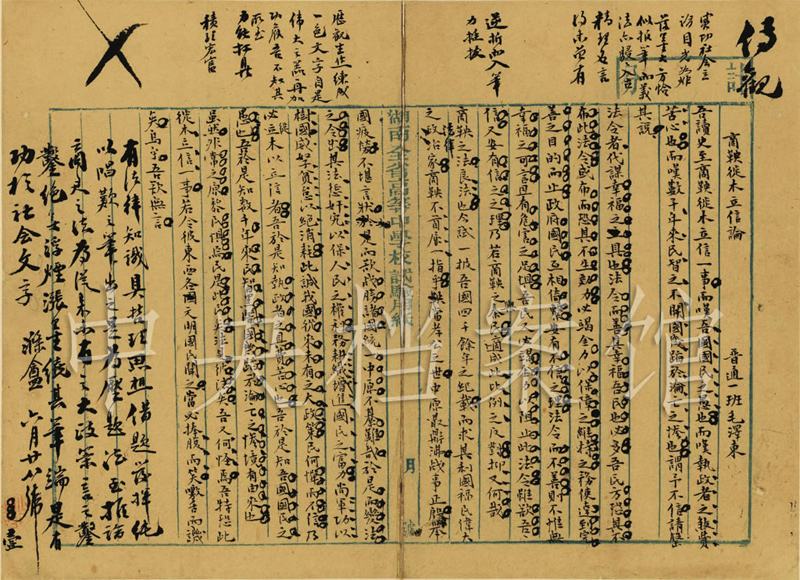 傳觀
實切社會立
論目光如炬
落墨大方恰
似報筆而義
法亦駸駸入古
精理名言
得未曾有
逆折而入筆
力挺拔
歷觀生作練成
一色文字自是
偉大之器再加
功候吾不知其
所至
力能扛鼎
積理宏富
商鞅徙木立信論　普通一班毛澤東
吾讀史至商鞅徙木立信一事而嘆吾國國民之愚也而嘆執政者之煞費
苦心也而嘆數千年來民智之不開國幾蹈於淪亡之慘也謂予不信請罄
其說
法令者代謀幸福之具也法令而善其幸福吾民也必多吾民方恐其不
布此法令或布而恐其不生效力必竭全力以保障之維持之務使達到完
善之目的而止政府國民互相倚繫安有不信之理法令而不善則不惟無
幸福之可言且有危害之足懼吾民又必竭全力以阻止此法令雖欲吾
信又安有信之之理乃若商鞅之與秦民適成此比例之反對抑又何哉
商鞅之法良法也今試一披吾國四千餘年之紀載而求其利國福民偉大
之政治家商鞅不首屈一指乎鞅當孝公之世中原鼎沸戰事正殷舉
湖南全省高等中學校試驗紙
月　號
國疲勞不堪言狀於是而欲戰勝諸國統一中原不綦難哉於是而變法
之令出其法懲奸宄以保人民之權利務耕織以增進國民之富力尚軍功以
樹國威孥貧怠以絕消耗此誠我國從來未有之大政策民何憚而不信乃
必徙木以立信者吾於是知執政者之具費苦心也吾於是知吾國國民之
愚也吾於是知數千年來民智黑闇國幾蹈於淪亡之慘境有由來也
雖然非常之原黎民懼焉民是此民矣法是彼法矣吾又何怪焉吾特恐此
徙木立信一事若令彼東西各國文明國民聞之當必捧腹而笑噭舌而譏
矣烏乎吾欲無言
有法律知識具哲理思想借題發揮純
以唱歎之筆出之是為壓題法至推論
商君之法為從來未有之大政策言之鑿
鑿絕無浮煙漲墨繞其筆端是有
功於社會文字
滌盦　六月廿八號
中央档案馆